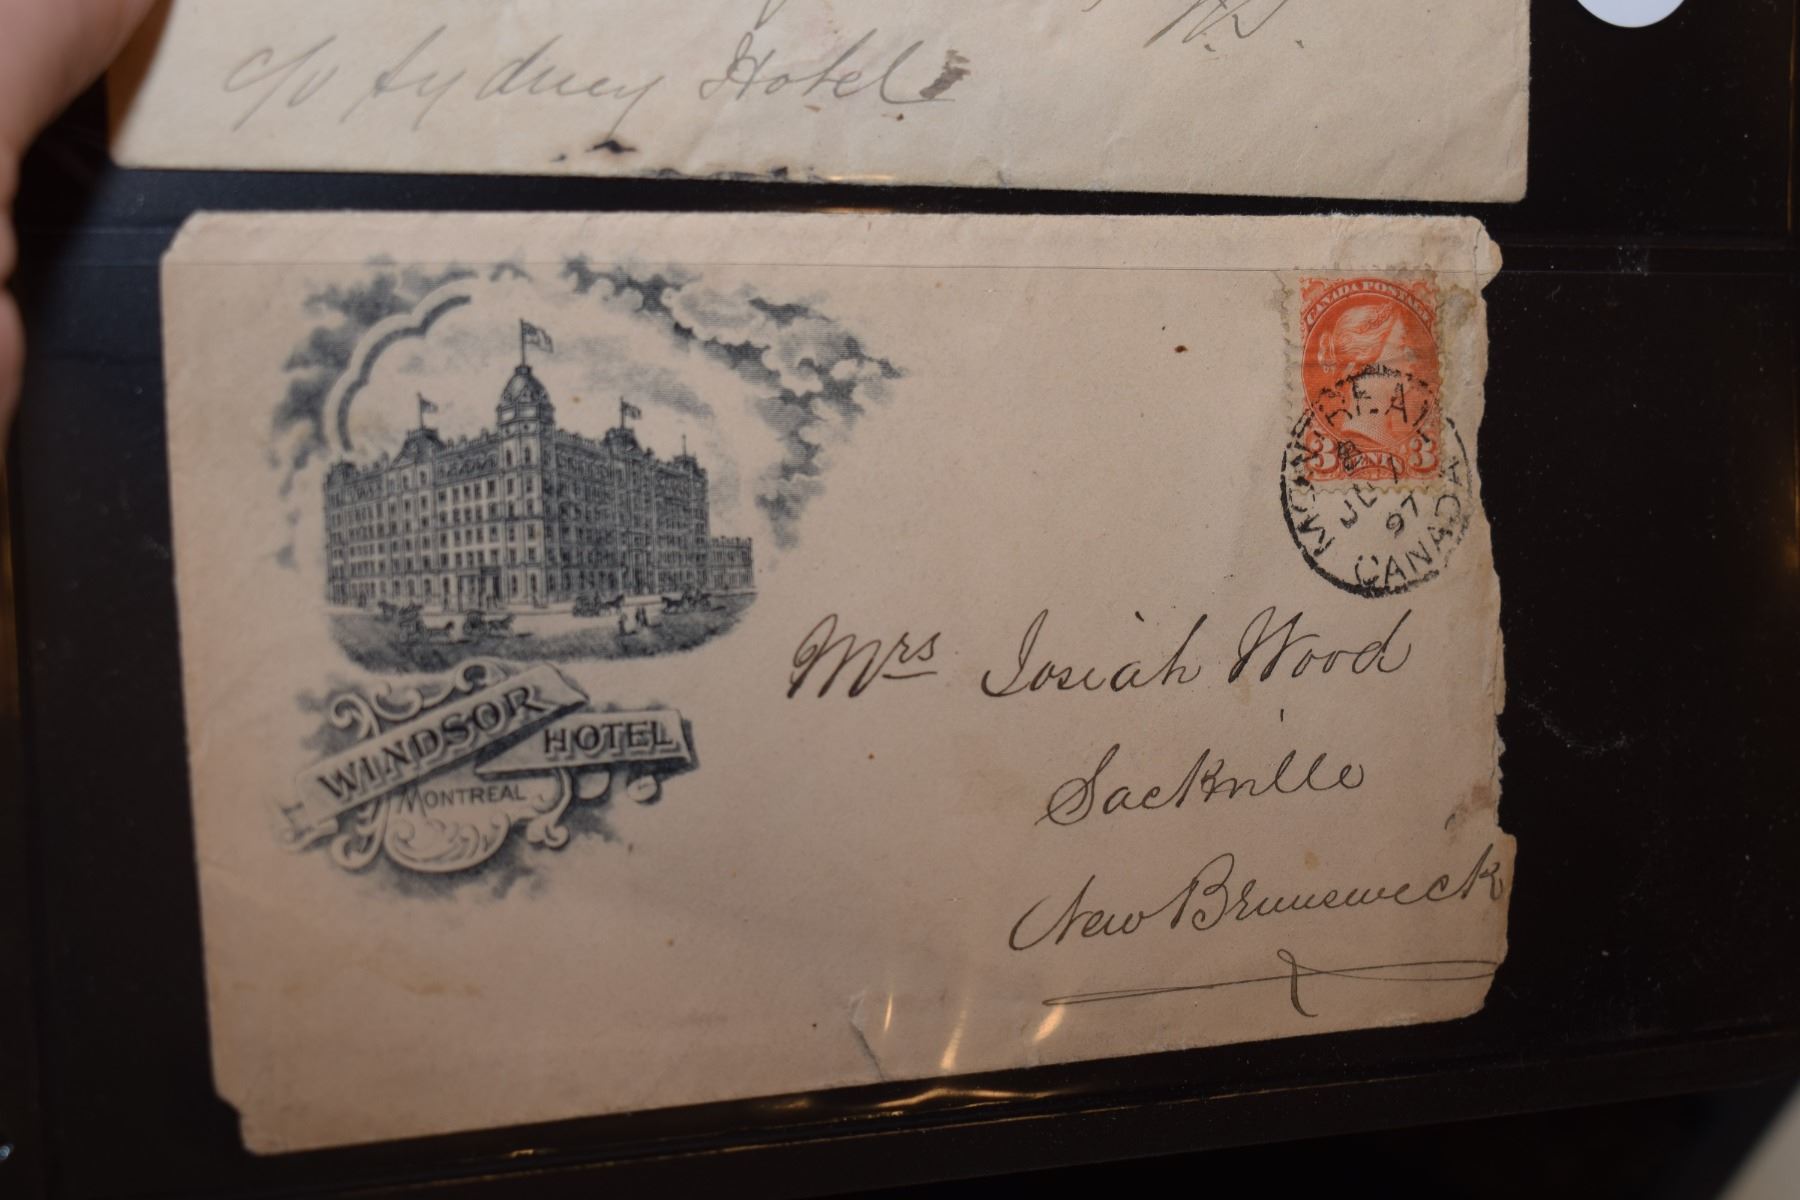 N.S.
c/o Sydney Hotel
CANADA POSTAGE
3 CENTS 3
MONTREAL
97
CANADA
WINDSOR HOTEL
MONTREAL
Mrs Josiah Wood
Sackville
New Brunswick